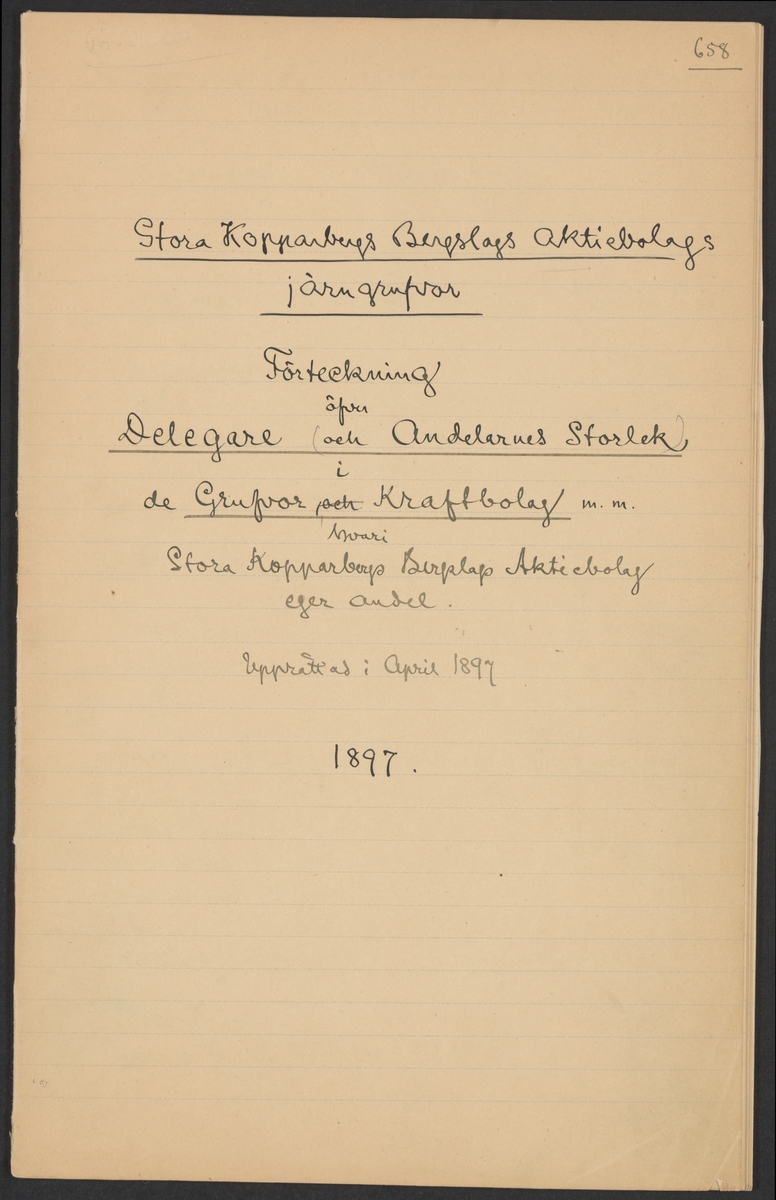 658
Stora Kopparbergs Bergslags Aktiebolags
järngrufvor
Förteckning
öfver
Delegare (och Andelarnes Storlek)
i
de Grufvor, och Kraftbolag m. m.
hvari
Stora Kopparbergs Bergslags Aktiebolag
eger andel.
Upprättad i April 1897
1897.